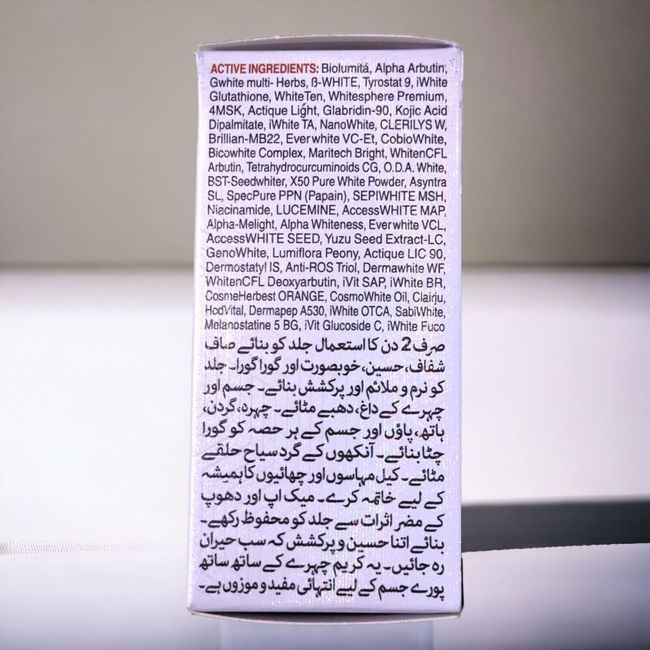 ACTIVE INGREDIENTS: Biolumitá, Alpha Arbutin,
Gwhite multi- Herbs, ß-WHITE, Tyrostat 9, iWhite
Glutathione, WhiteTen, Whitesphere Premium,
4MSK, Actique Light, Glabridin-90, Kojic Acid
Dipalmitate, iWhite TA, NanoWhite, CLERILYS W,
Brillian-MB22, Ever white VC-Et, CobioWhite,
Bicowhite Complex, Maritech Bright, WhitenCFL
Arbutin, Tetrahydrocurcuminoids CG, O.D.A. White,
BST-Seedwhiter, X50 Pure White Powder, Asyntra
SL, SpecPure PPN (Papain), SEPIWHITE MSH,
Niacinamide, LUCEMINE, AccessWHITE MAP,
Alpha-Melight, Alpha Whiteness, Everwhite VCL,
AccessWHITE SEED, Yuzu Seed Extract-LC,
GenoWhite, Lumiflora Peony, Actique LIC 90,
Dermostatyl IS, Anti-ROS Triol, Dermawhite WF,
WhitenCFL Deoxyarbutin, iVit SAP, iWhite BR,
CosmeHerbest ORANGE, CosmoWhite Oil, Clairju,
HodVital, Dermapep A530, iWhite OTCA, SabiWhite,
Melanostatine 5 BG, iVit Glucoside C, iWhite Fuco
صرف 2 دن کا استعمال جلد کو بنائے صاف
شفاف، حسین، خوبصورت اور گورا گورا۔ جلد
کو نرم و ملائم اور پرکشش بنائے۔ جسم اور
چہرے کے داغ، دھبے مٹائے۔ چہرہ، گردن،
ہاتھ، پاؤں اور جسم کے ہر حصہ کو گورا
چٹا بنائے۔ آنکھوں کے گرد سیاح حلقے
مٹائے۔ کیل مہاسوں اور چھائیوں کا ہمیشہ
کے لیے خاتمہ کرے۔ میک اپ اور دھوپ
کے مضر اثرات سے جلد کو محفوظ رکھے۔
بنائے اتنا حسین و پرکشش کہ سب حیران
رہ جائیں۔ یہ کریم چہرے کے ساتھ ساتھ
پورے جسم کے لیے انتہائی مفید و موزوں ہے۔